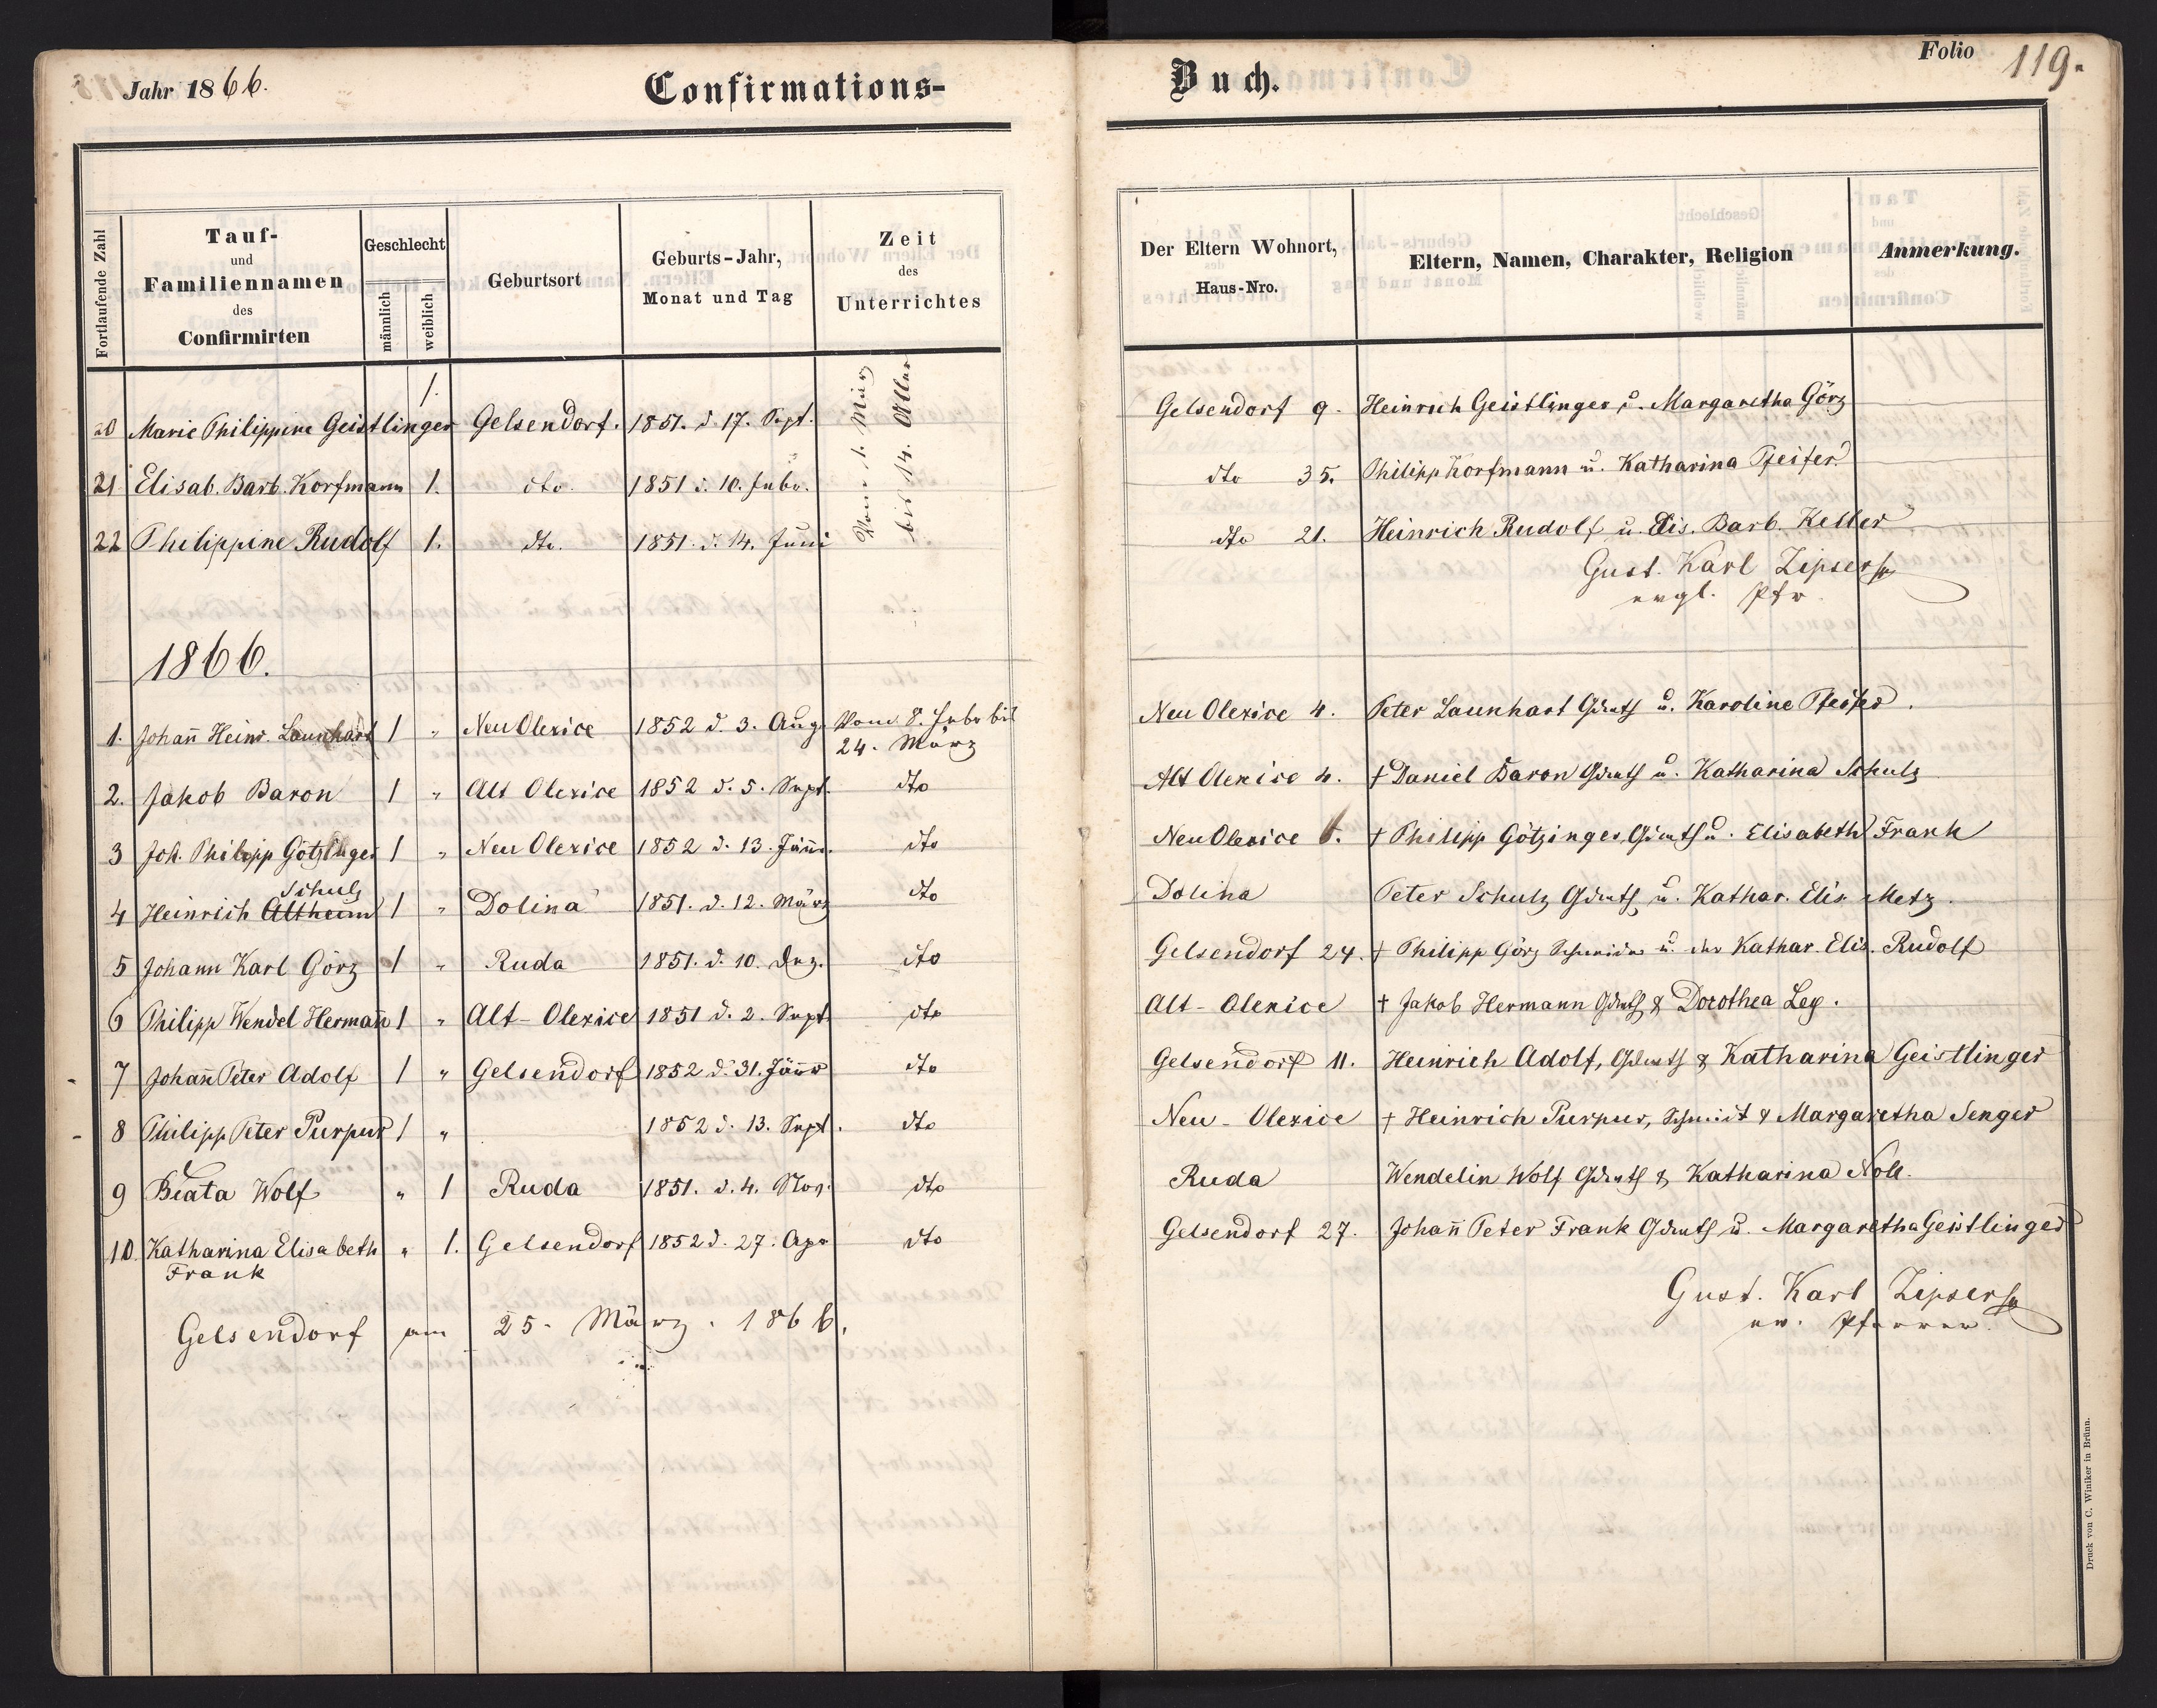 Jahr 1866.
Confirmations-
Buch.
Folio 119.
Fortlaufende Zahl
Tauf-
und
Familiennamen
des
Confirmirten
Geschlecht
männlich
weiblich
Geburtsort
Geburts-Jahr,
Monat und Tag
Zeit
des
Unterrichtes
Der Eltern Wohnort,
Haus-Nro.
Eltern, Namen, Charakter, Religion
Anmerkung.
Vom 1. März
bis 14. Aller
20 Marie Philippine Geistlinger 1. Gelsendorf. 1851. d. 17. Sept. Gelsendorf 9. Heinrich Geistlinger u. Margaretha Görz
21 Elisab. Barb. Korfmann 1. dto. 1851 d. 10. Febr. dto 35. Philipp Korfmann u. Katharina Pfeifer
22 Philippine Rudolf 1. dto. 1851. d. 14. Juni dto 21. Heinrich Rudolf u. Elis. Barb. Keller
Gust. Karl Zipser
evgl. Pfr.
1866.
1. Johañ Heinr. Launhart 1 " Neu Olexice 1852 d. 3. Aug. Vom 8. Febr bis
24. März
Neu Olexice 4. Peter Launhart u. Karoline Pfeifer.
2. Jakob Baron 1 " Alt Olexice 1852 d. 5. Sept. dto Alt Olexice 4. † Daniel Baron u. Katharina Schulz
3 Joh. Philipp Götzinger 1 " Neu Olexice 1852 d. 13. Jänn. dto Neu Olexice 6. † Philipp Götzinger u. Elisabeth Frank
Schulz
4 Heinrich Altheim 1 " Dolina 1851. d. 12. März dto Dolina Peter Schulz u. Kathar. Elis. Metz.
5 Johann Karl Görz 1 " Ruda 1851. d. 10. Dez. dto Gelsendorf 24. † Philipp Görz u. der Kathar. Elis. Rudolf
6 Philipp Wendel Hermañ 1 " Alt-Olexice 1851 d. 2. Sept. dto Alt-Olexice † Jakob Hermann & Dorothea Ley.
7 Johañ Peter Adolf 1 " Gelsendorf 1852 d. 31. Jänr dto Gelsendorf 11. Heinrich Adolf, & Katharina Geistlinger
8 Philipp Peter Purpur 1 " 1852 d. 13. Sept. dto Neu-Olexice † Heinrich Purpur, Schmidt & Margaretha Senger
9 Beata Wolf " 1 Ruda 1851. d. 4. Nov. dto Ruda Wendelin Wolf & Katharina Noll.
10. Katharina Elisabeth " 1. Gelsendorf 1852 d. 27. Apr dto Gelsendorf 27. Johañ Peter Frank u. Margaretha Geistlinger
Frank
Gust. Karl Zipser
ev. Pfarrer.
Gelsendorf am 25. März. 1866.
Druck von C. Winiker in Brünn.